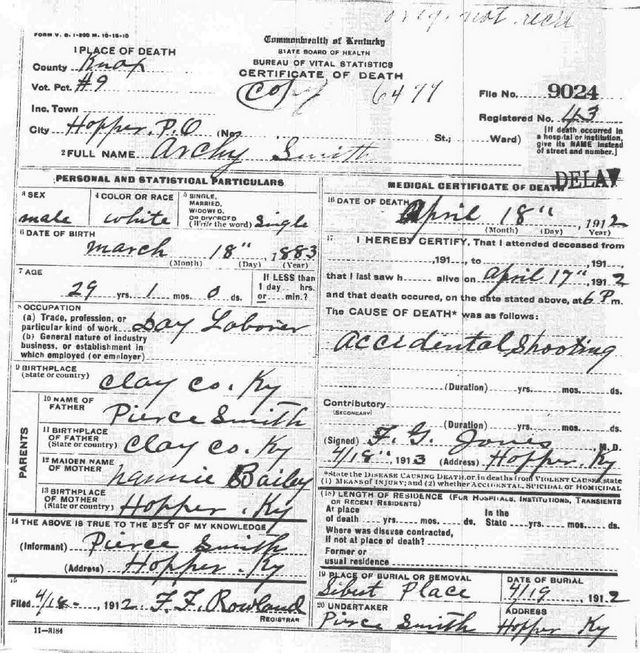 orig. not recd
FORM V. S. 1-200 M. 10-15-10
Commonwealth of Kentucky
STATE BOARD OF HEALTH
BUREAU OF VITAL STATISTICS
CERTIFICATE OF DEATH
Copy 6477
1 PLACE OF DEATH
County Knox
Vot. Pct. #9
Inc. Town
City Hopper P.O (No. St.; Ward)
File No. 9024
Registered No. 43
[If death occurred in a hospital or institution, give its NAME instead of street and number.]
2 FULL NAME Archy Smith
PERSONAL AND STATISTICAL PARTICULARS
3 SEX
male
4 COLOR OR RACE
white
5 SINGLE, MARRIED, WIDOWED, OR DIVORCED (Write the word) Single
6 DATE OF BIRTH
March 18" 1883
(Month) (Day) (Year)
7 AGE
29 yrs. 1 mos. 0 ds.
If LESS than 1 day, hrs. or min.?
8 OCCUPATION
(a) Trade, profession, or
particular kind of work Day Laborer
(b) General nature of industry
business, or establishment in
which employed (or employer)
9 BIRTHPLACE
(State or country) Clay co. Ky
PARENTS
10 NAME OF FATHER Pierce Smith
11 BIRTHPLACE OF FATHER (State or country) Clay co. Ky
12 MAIDEN NAME OF MOTHER Nannie Bailey
13 BIRTHPLACE OF MOTHER (State or country) Hopper. Ky
14 THE ABOVE IS TRUE TO THE BEST OF MY KNOWLEDGE
(Informant) Pierce Smith
(Address) Hopper. Ky
15
Filed 4/18- 1912 F. F. Rowland
REGISTRAR
11-8184
MEDICAL CERTIFICATE OF DEATH
DELAY
16 DATE OF DEATH
April 18" 1912
(Month) (Day) (Year)
17 I HEREBY CERTIFY, That I attended deceased from
, 191 to , 191
that I last saw h alive on April 17" 1912
and that death occured, on the date stated above, at 6 P m.
The CAUSE OF DEATH* was as follows:
Accidental Shooting
(Duration) yrs. mos. ds.
Contributory
(SECONDARY)
(Duration) yrs. mos. ds.
(Signed) F. G. Jones M. D.
4/18" 1913 (Address) Hopper. Ky
*State the DISEASE CAUSING DEATH, or, in deaths from VIOLENT CAUSES, state
(1) MEANS OF INJURY; and (2) whether ACCIDENTAL, SUICIDAL or HOMICIDAL.
18 LENGTH OF RESIDENCE (FOR HOSPITALS, INSTITUTIONS, TRANSIENTS
OR RECENT RESIDENTS)
At place of death yrs. mos. ds. In the State yrs. mos. ds.
Where was disease contracted,
if not at place of death?
Former or
usual residence
19 PLACE OF BURIAL OR REMOVAL
Place
DATE OF BURIAL
4/19, 1912
20 UNDERTAKER
Pierce Smith
ADDRESS
Hopper Ky